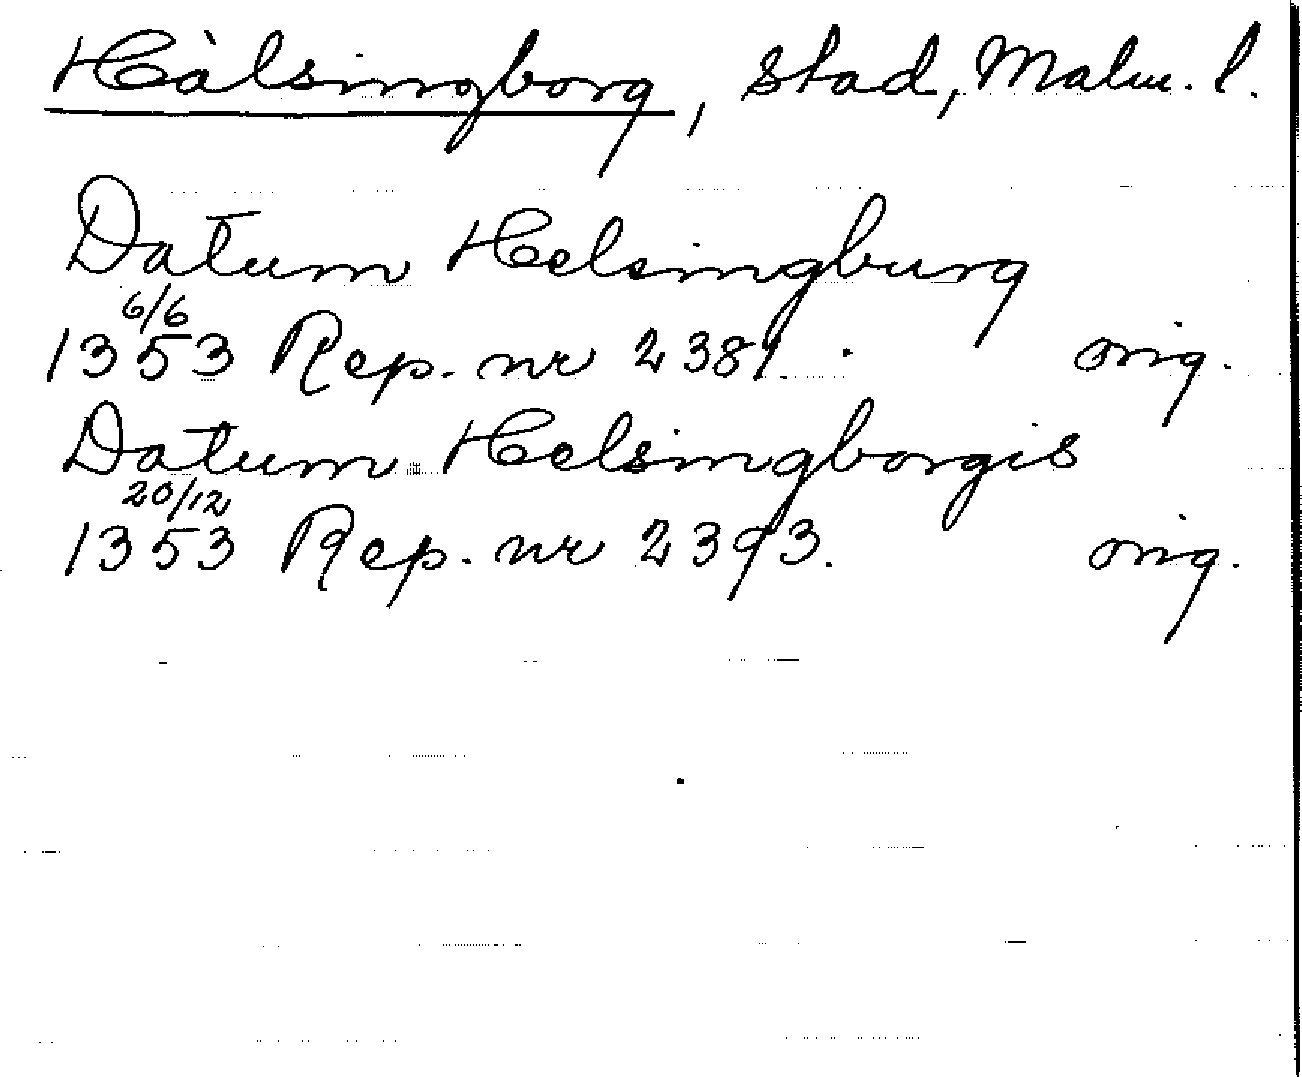 Hälsingborg, stad, Malm. l.
Datum Helsingburg
6/6
1353 Rep. nr 2381. orig.
Datum Helsingborgis
20/12
1353 Rep. nr 2393. orig.